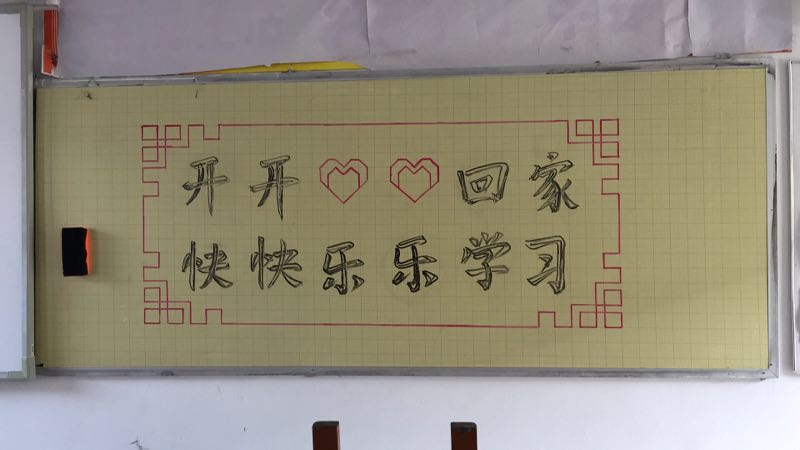 开开♡♡回家
快快乐乐学习